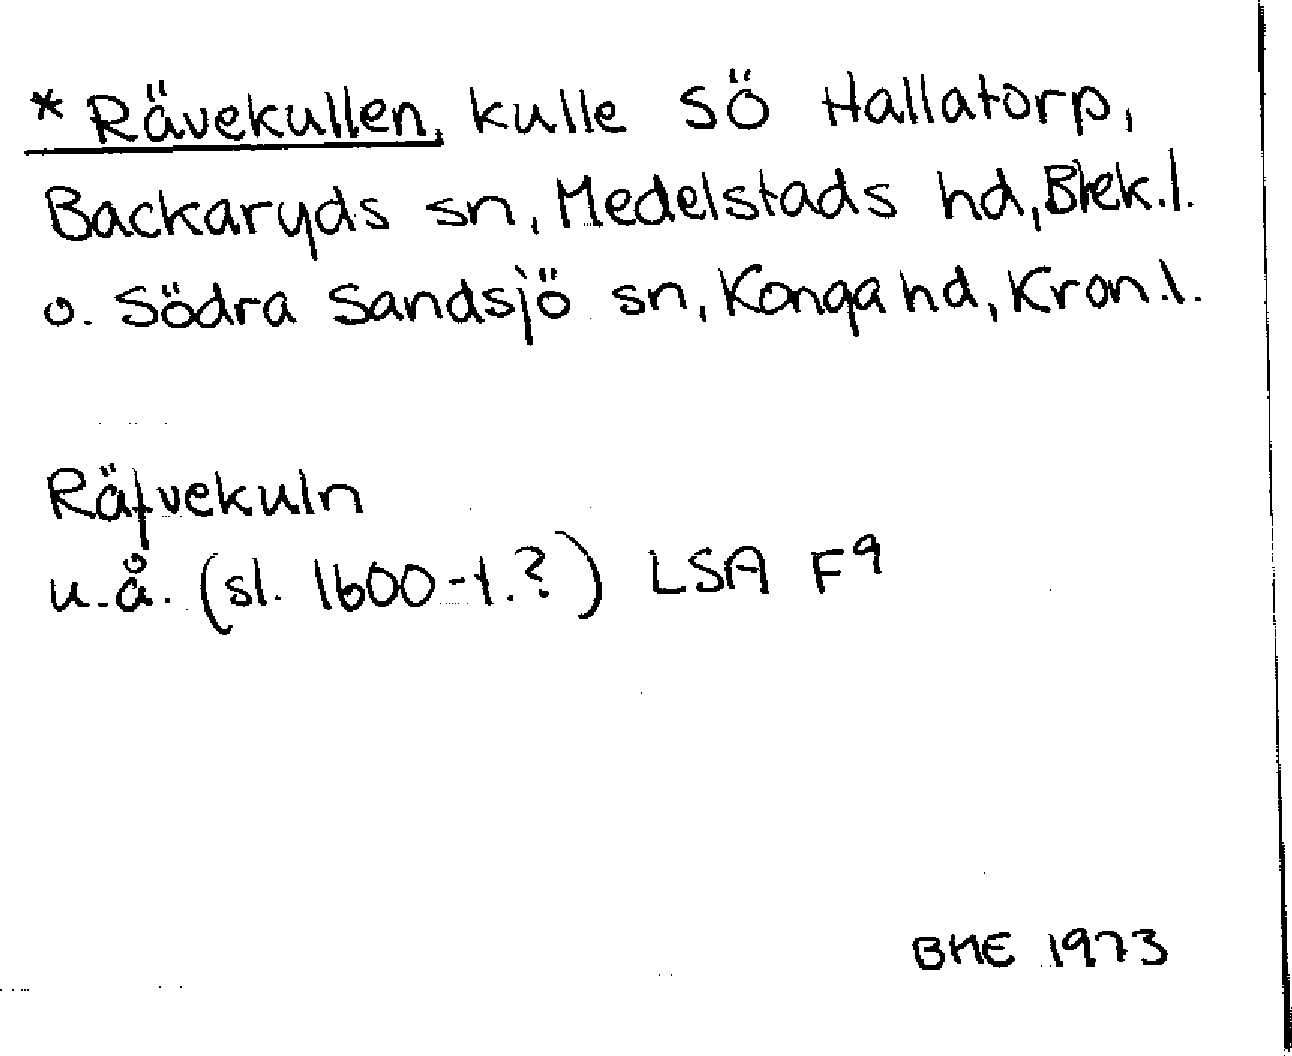 * Rävekullen, kulle SÖ Hallatorp,
Backaryds sn, Medelstads hd, Blek.l.
o. Södra Sandsjö sn, Konga hd, Kron.l.
Räfvekuln
u.å. (sl. 1600-t.?) LSA F9
BME 1973